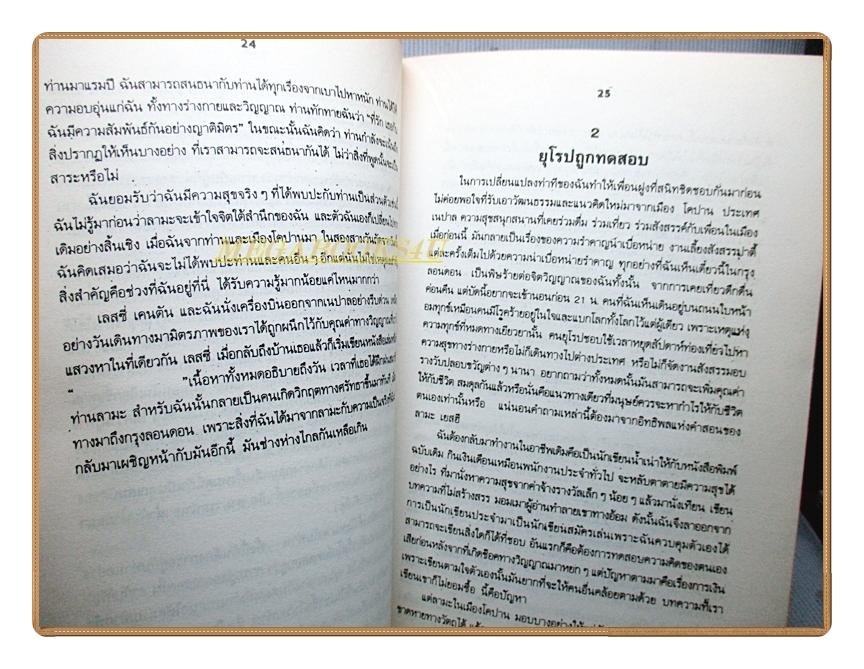 24
ท่านมาแรมปี ฉันสามารถสนธนากับท่านได้ทุกเรื่องจากเบาไปหาหนัก ท่านได้ให้
ความอบอุ่นแก่ฉัน ทั้งทางร่างกายและวิญญาณ ท่านทักทายฉันว่า "ที่รัก
ฉันมีความสัมพันธ์กันอย่างญาติมิตร" ในขณะนั้นฉันคิดว่า ท่านกำลังจะฉัน
สิ่งปรากฏให้เห็นบางอย่าง ที่เราสามารถจะสนธนากันได้ ไม่ว่าสิ่งที่พูดนั้นจะเป็น
สาระหรือไม่
ฉันยอมรับว่าฉันมีความสุขจริง ๆ ที่ได้พบปะกับท่านเป็นส่วนตัว
ฉันไม่รู้มาก่อนว่าลามะจะเข้าใจจิตใต้สำนึกของฉัน และตัวฉันเองก็เปลี่ยนไป
เดิมอย่างสิ้นเชิง เมื่อฉันจากท่านและเมืองโคปานมา ในสองสามวันถัด
ฉันคิดเสมอว่าฉันจะไม่ได้พบปะท่านและคนอื่น ๆ อีกแต่นั่นไม่ใช่เหตุผล
สิ่งสำคัญคือช่วงที่ฉันอยู่ที่นี่ ได้รับความรู้มากน้อยแค่ไหนมากกว่า
เลสซี่ เคนตัน และฉันนั่งเครื่องบินออกจากเนปาลอย่างรีบด่วน
อย่างวันเดินทางมามิตรภาพของเราได้ถูกผนึกไว้กับคุณค่าทางวิญญาณที่
แสวงหาในที่เดียวกัน เลสซี่ เมื่อกลับถึงบ้านเธอแล้วก็เริ่มเขียนหนังสือ
" "เนื้อหาทั้งหมดอธิบายถึงวัน เวลาที่เธอได้ฝึก
ท่านลามะ สำหรับฉันนั้นกลายเป็นคนเกิดวิกฤตทางศรัทธาขึ้นมาทันที
ทางมาถึงกรุงลอนดอน เพราะสิ่งที่ฉันได้มาจากลามะกับความเป็นจริงที่
กลับมาเผชิญหน้ากับมันอีกนี้ มันช่างห่างไกลกันเหลือเกิน
MEGABOOKS4U
25
2
ยุโรปถูกทดสอบ
ในการเปลี่ยนแปลงท่าทีของฉันทำให้เพื่อนฝูงที่สนิทชิดชอบกันมาก่อน
ไม่ค่อยพอใจที่รับเอาวัฒนธรรมและแนวคิดใหม่มาจากเมือง โคปาน ประเทศ
เนปาล ความสุขสนุกสนานที่เคยร่วมดื่ม ร่วมเที่ยว ร่วมสังสรรค์กับเพื่อนในเมือง
เมื่อก่อนนี้ มันกลายเป็นเรื่องของความรำคาญน่าเบื่อหน่าย งานเลี้ยงสังสรรปาตี้
แต่ละครั้งเต็มไปด้วยความน่าเบื่อหน่ายรำคาญ ทุกอย่างที่ฉันเห็นเดี๋ยวนี้ในกรุง
ลอนดอน เป็นพิษร้ายต่อจิตวิญญาณของฉันทั้งนั้น จากการเคยเที่ยวดึกดื่น
ค่อนคืน แต่บัดนี้อยากจะเข้านอนก่อน 21 น. คนที่ฉันเห็นเดินอยู่บนถนนใบหน้า
อมทุกข์เหมือนคนมีโรคร้ายอยู่ในใจและแบกโลกทั้งโลกไว้แต่ผู้เดียว เพราะเหตุแห่ง
ความทุกข์ที่หมดทางเยียวยานั้น คนยุโรปชอบใช้เวลาหยุดสัปดาห์ท่องเที่ยวไปหา
ความสุขทางร่างกายหรือไม่ก็เดินทางไปต่างประเทศ หรือไม่ก็จัดงานสังสรรมอบ
รางวัลปลอบขวัญต่าง ๆ นานา อยากถามว่าทั้งหมดนั้นมันสามารถจะเพิ่มคุณค่า
ให้กับชีวิต สมดุลกันแล้วหรือนั่นคือแนวทางเดียวที่มนุษย์ควรจะหากำไรให้กับชีวิต
ตนเองเท่านั้นหรือ แน่นอนคำถามเหล่านี้ต้องมาจากอิทธิพลแห่งคำสอนของ
ลามะ เยสฮี
ฉันต้องกลับมาทำงานในอาชีพเดิมคือเป็นนักเขียนน้ำเน่าให้กับหนังสือพิมพ์
ฉบับเดิม กินเงินเดือนเหมือนพนักงานประจำทั่วไป จะหลับตาตายมีความสุขได้
อย่างไร ที่มานั่งหาความสุขจากค่าจ้างรางวัลเล็ก ๆ น้อย ๆ แล้วมานั่งเทียน เขียน
บทความที่ไม่สร้างสรร มอมเมาผู้อ่านทำลายเขาทางอ้อม ดังนั้นฉันจึงลาออกจาก
การเป็นนักเขียนประจำมาเป็นนักเขียนสมัครเล่นเพราะฉันควบคุมตัวเองได้
สามารถจะเขียนสิ่งใดก็ได้ที่ชอบ อันแรกก็คือต้องการทดสอบความคิดของตนเอง
เสียก่อนหลังจากที่เกิดช็อคทางวิญญาณมาหยก ๆ แต่ปัญหาตามมาคือเรื่องการเงิน
เพราะเขียนตามใจตัวเองนั้นมันยากที่จะให้คนอื่นคล้อยตามด้วย บทความที่เรา
เขียนเขาก็ไม่ยอมซื้อ นี้คือปัญหา
แต่ลามะในเมืองโคปาน มอบบางอย่างให้
ขาดหายทางวัตถุได้